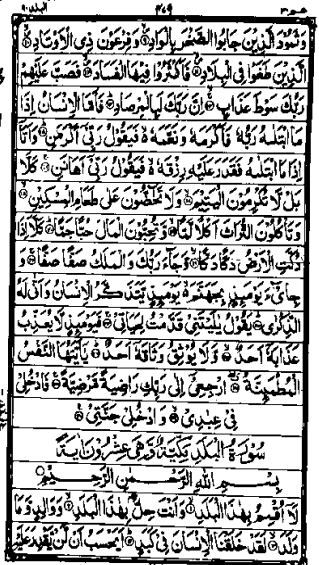 البلد ٩٠
٤٧٩
عم ٣٠
وَثَمُودَ الَّذِينَ جَابُوا الصَّخْرَ بِالْوَادِ ۝ وَفِرْعَوْنَ ذِي الْأَوْتَادِ ۝
الَّذِينَ طَغَوْا فِي الْبِلَادِ ۝ فَأَكْثَرُوا فِيهَا الْفَسَادَ ۝ فَصَبَّ عَلَيْهِمْ
رَبُّكَ سَوْطَ عَذَابٍ ۝ إِنَّ رَبَّكَ لَبِالْمِرْصَادِ ۝ فَأَمَّا الْإِنْسَانُ إِذَا
مَا ابْتَلٰهُ رَبُّهُ فَأَكْرَمَهُ وَنَعَّمَهُ فَيَقُولُ رَبِّي أَكْرَمَنِ ۝ وَأَمَّا
إِذَا مَا ابْتَلٰهُ فَقَدَرَ عَلَيْهِ رِزْقَهُ فَيَقُولُ رَبِّي أَهَانَنِ ۝ كَلَّا
بَلْ لَا تُكْرِمُونَ الْيَتِيمَ ۝ وَلَا تَحٰضُّونَ عَلٰى طَعَامِ الْمِسْكِينِ ۝
وَتَأْكُلُونَ التُّرَاثَ أَكْلًا لَمًّا ۝ وَتُحِبُّونَ الْمَالَ حُبًّا جَمًّا ۝ كَلَّا إِذَا
دُكَّتِ الْأَرْضُ دَكًّا دَكًّا ۝ وَجَاءَ رَبُّكَ وَالْمَلَكُ صَفًّا صَفًّا ۝ وَ
جِايْءَ يَوْمَئِذٍ بِجَهَنَّمَ يَوْمَئِذٍ يَتَذَكَّرُ الْإِنْسَانُ وَأَنّٰى لَهُ
الذِّكْرٰى ۝ يَقُولُ يٰلَيْتَنِي قَدَّمْتُ لِحَيَاتِي ۝ فَيَوْمَئِذٍ لَا يُعَذِّبُ
عَذَابَهُ أَحَدٌ ۝ وَلَا يُوثِقُ وَثَاقَهُ أَحَدٌ ۝ يٰأَيَّتُهَا النَّفْسُ
الْمُطْمَئِنَّةُ ۝ ارْجِعِي إِلٰى رَبِّكِ رَاضِيَةً مَرْضِيَّةً ۝ فَادْخُلِي
فِي عِبٰدِي ۝ وَادْخُلِي جَنَّتِي ۝
سُورَةُ الْبَلَدِ مَكِّيَّةٌ وَهِيَ عِشْرُونَ اٰيَةً
بِسْمِ اللهِ الرَّحْمٰنِ الرَّحِيمِ
لَا أُقْسِمُ بِهٰذَا الْبَلَدِ ۝ وَأَنْتَ حِلٌّ بِهٰذَا الْبَلَدِ ۝ وَوَالِدٍ وَمَا
وَلَدَ ۝ لَقَدْ خَلَقْنَا الْإِنْسَانَ فِي كَبَدٍ ۝ أَيَحْسَبُ أَنْ لَنْ يَقْدِرَ عَلَيْهِ